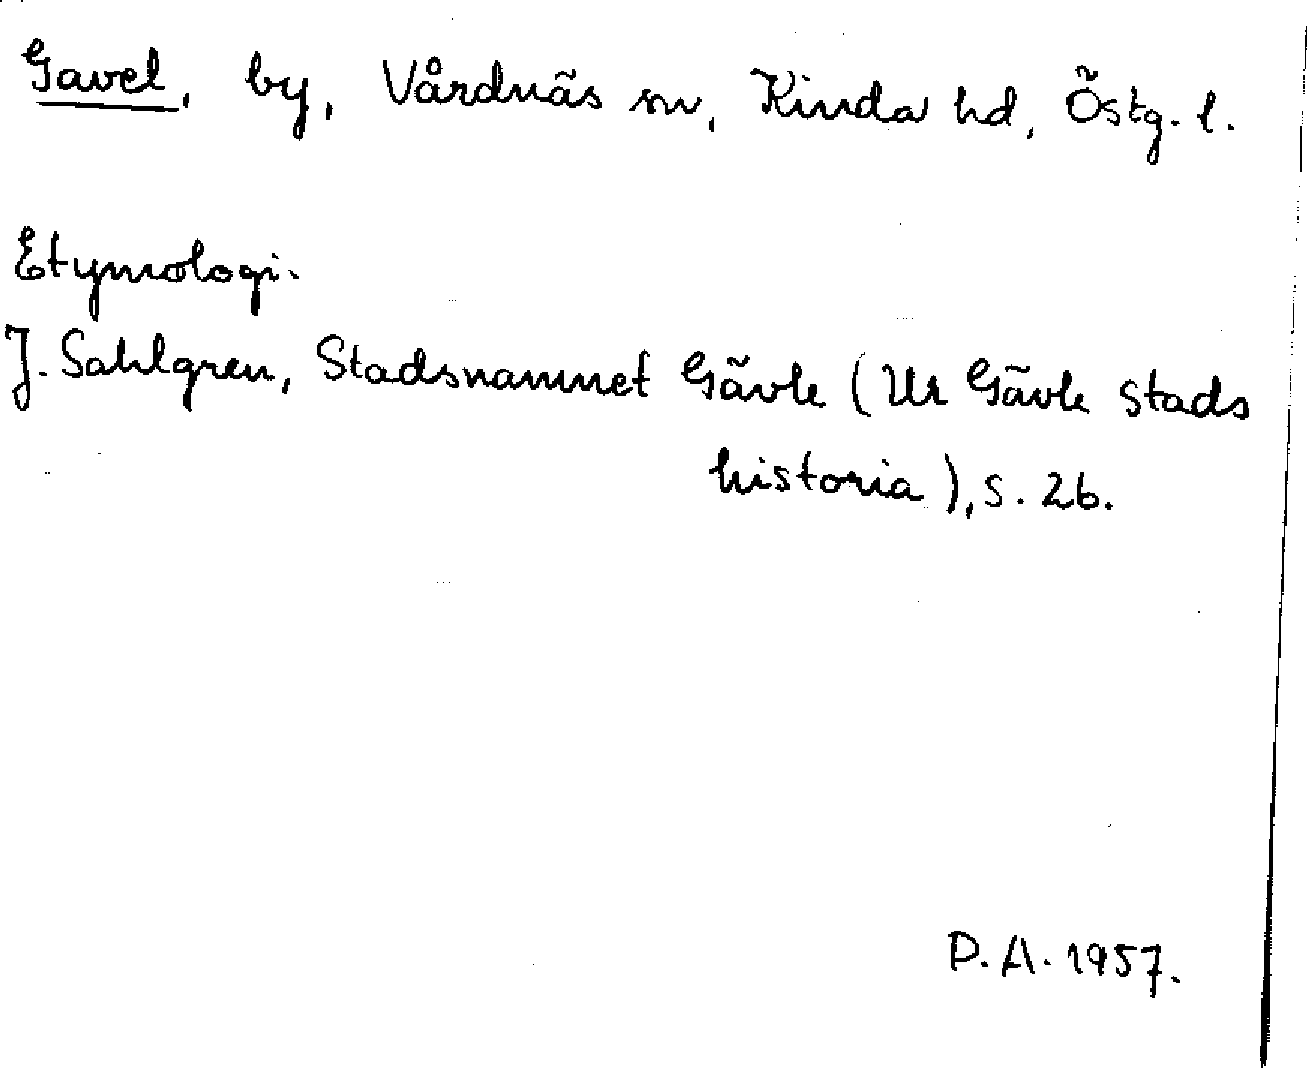 Gavel, by, Vårdnäs sn, Kinda hd, Östg. l.
Etymologi.
J. Sahlgren, Stadsnamnet Gävle (Ur Gävle stads
historia), s. 26.
P.A. 1957.